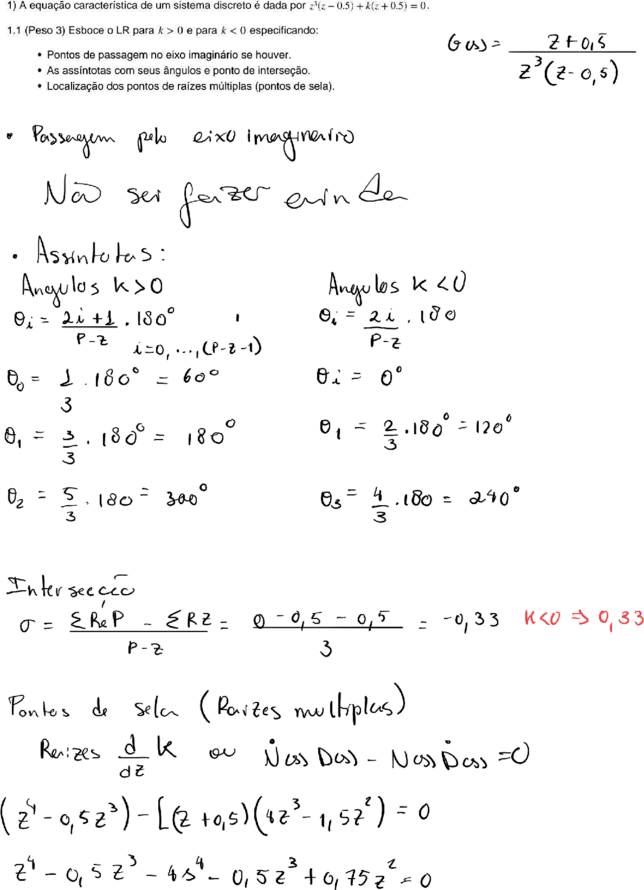 1) A equação característica de um sistema discreto é dada por z³(z − 0.5) + k(z + 0.5) = 0.
1.1 (Peso 3) Esboce o LR para k > 0 e para k < 0 especificando:
• Pontos de passagem no eixo imaginário se houver.
• As assíntotas com seus ângulos e ponto de interseção.
• Localização dos pontos de raízes múltiplas (pontos de sela).
G(s) = (z+0,5) / (z³(z-0,5))
• Passagem pelo eixo imaginário
Não sei fazer ainda
• Assintotas:
Angulos k>0
θi = (2i+1)/(P-z) . 180° , i=0, ..., (P-z-1)
θ0 = 1/3 . 180° = 60°
θ1 = 3/3 . 180° = 180°
θ2 = 5/3 . 180 = 300°
Angulos k<0
θi = 2i/(P-z) . 180
θi = 0°
θ1 = 2/3 . 180° = 120°
θ3 = 4/3 . 180 = 240°
Intersecção
σ = (ΣRéP - ΣRZ)/(P-z) = (0 - 0,5 - 0,5)/3 = -0,33 K<0 ⇒ 0,33
Pontos de sela (Raizes multiplas)
Raizes d/dz K ou Ṅ(s) D(s) - N(s) Ḋ(s) = 0
(z⁴ - 0,5z³) - [(z+0,5)(4z³ - 1,5z²) = 0
z⁴ - 0,5z³ - 4s⁴ - 0,5z³ + 0,75z² = 0